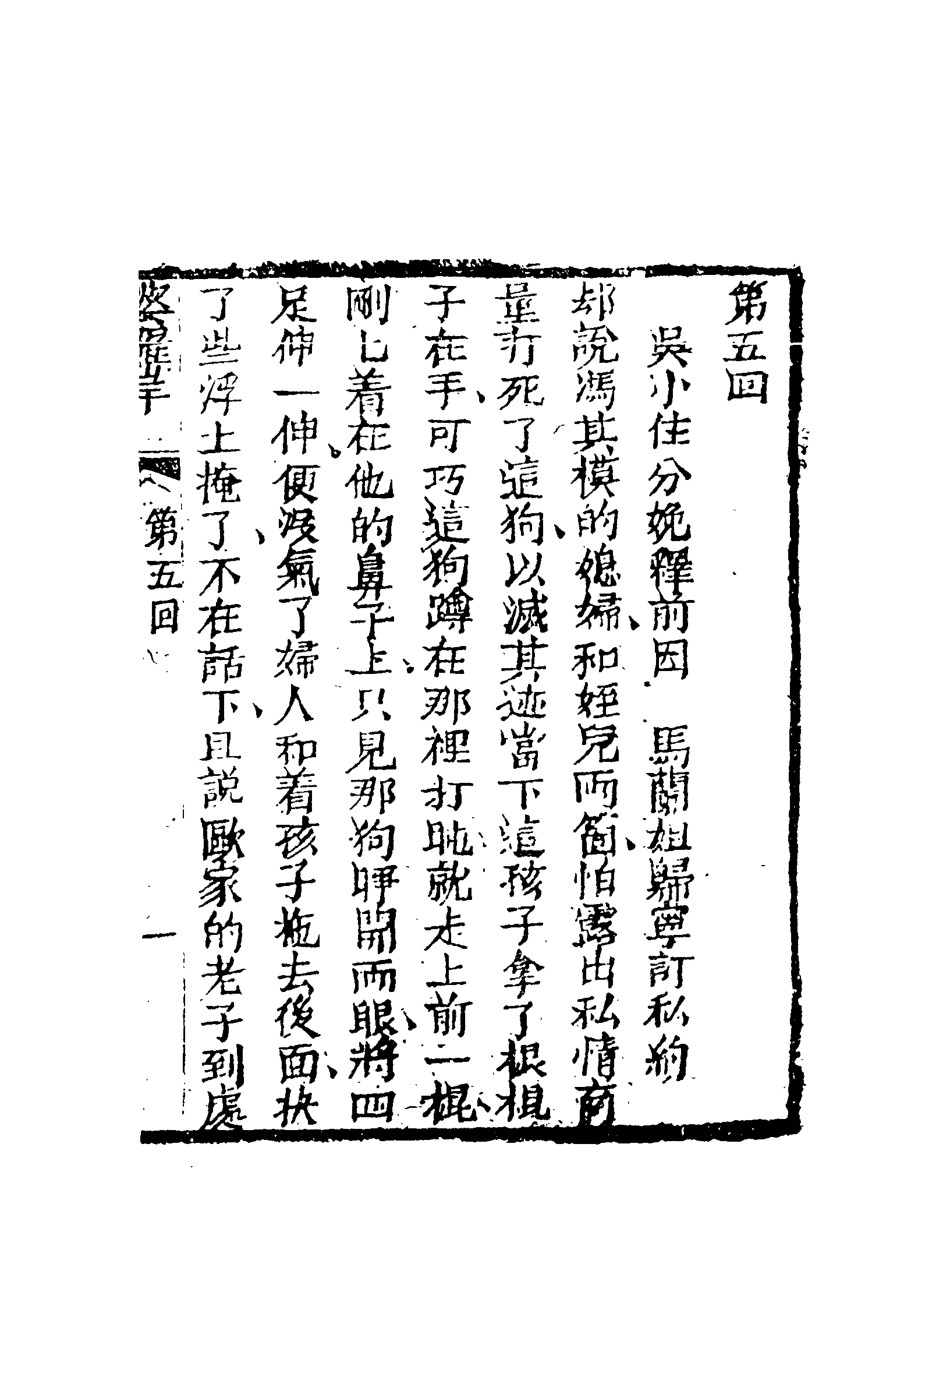 第五回
吳小住分娩釋前因 馬蘭姐歸寧訂私約
却說馮其模的媳婦、和姪兒兩箇、怕露出私情商
量打死了這狗、以滅其迹當下這孩子拿了根棍
子在手、可巧這狗蹲在那裡打盹就走上前一棍、
剛七着在他的鼻子上。只見那狗睜開兩眼、將四
足伸一伸。便没氣了婦人和着孩子拖去後面、抉
了些浮土掩了、不在話下、且説歐家的老子到處
第五回
一